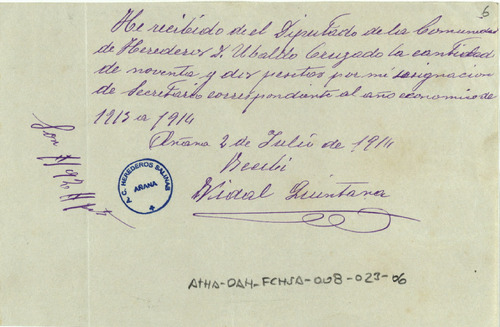 6
He recibido del el Diputado de la Comunidad
de Herederos D. Ubaldo Cruzado la cantidad
de noventa y dos pesetas por mi asignacion
de Secretario correspondiente al año economico de
1913 a 1914
Añana 2 de Julio de 1914
Recibi
Vidal Quintana
Son # 92 # pts
P. C. HEREDEROS SALINAS
AÑANA
ATHA-DAH-FCHSA-008-023-06